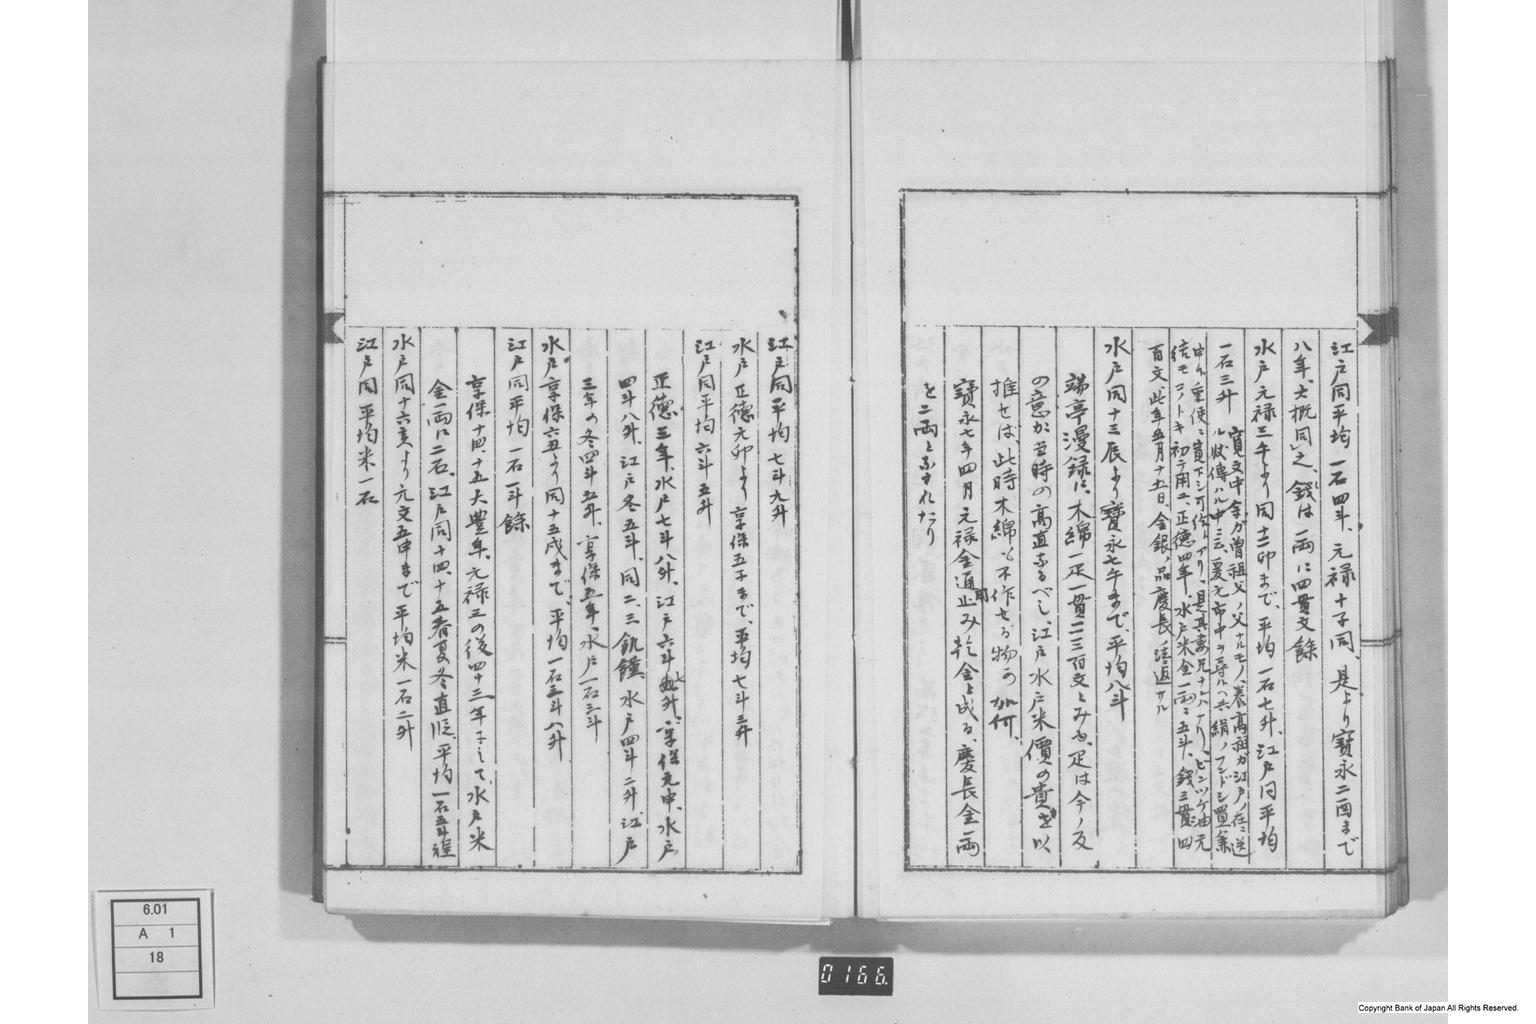 江戸同平均一石四斗、元禄十子同、是より寳永二酉まで
八年、大概同之、錢は一両に四貫文餘
水戸元禄三午より同十二卯まで、平均一石七升、江戸同平均
一石三升
寛文中余ガ曽祖父ノ父ナルモノ、養高祖ガ江戸ノ在ニ送
結モコノトキ初テ用ユ、正徳四年、水戸米金一両ニ五斗、錢三貫四
百文、此年五月十五日、金銀ノ品慶長ノ法返サル
水戸同十三辰より寳永七午まで、平均八斗
端亭漫録に、木綿一疋一貫二三百文とみゆ、疋は今ノ反
の意か、当時の高直なるべし、江戸水戸米價の貴きを以
推せば、此時木綿も不作せる物か如何、
寳永七年四月元禄金通用止み乾金と成る、慶長金一両
を二両となされたり
江戸同平均七斗九升
水戸正徳元卯より享保五子まで、平均七斗三升
江戸同平均六斗五升
正徳三年、水戸七斗八升、江戸六斗七升、享保元申、水戸
四斗八升、江戸冬五斗、同二、三飢饉水戸四斗二升、江戸
三年の冬四斗五升、享保五年、水戸一石三斗
水戸享保六丑より同十五戌まで、平均一石三斗八升
江戸同平均一石一斗餘
享保十四、十五大豊年、元禄三の後四十三年にして、水戸米
金一両に二石、江戸同十四、十五春夏冬直段、平均一石五斗程
水戸同十六亥より元文五申まで平均米一石二升
江戸同平均米一石
6.01
A 1
18
0166.
Copyright Bank of Japan All Rights Reserved.